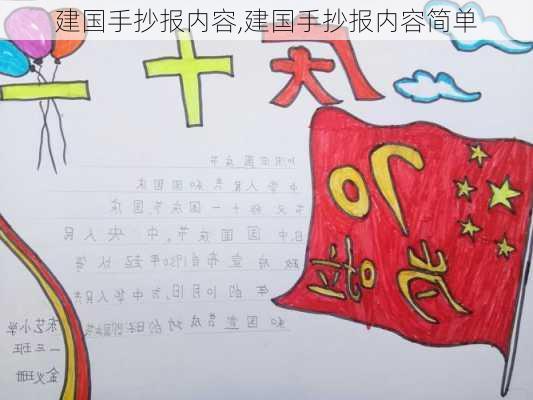 建国手抄报内容,建国手抄报内容简单
庆十一
70
中华人民共和国国庆
节又称十一国庆节 国庆
日,中国国庆节。中央人民
政府宣布自1950年起以每
年的10月1日,为中华人民共
和国宣告成立的日子
小学